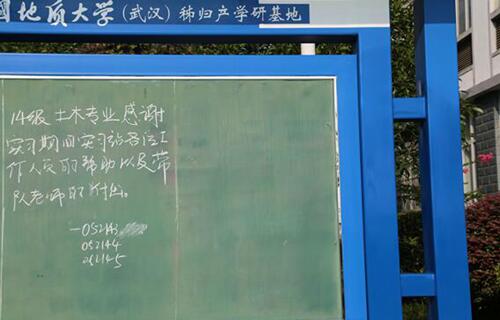 國地质大学(武汉)秭归产学研基地
14级土木专业感谢
实习期间实习站各位工
作人员的帮助以及带
队老师的付出。
—052143
052144
052145